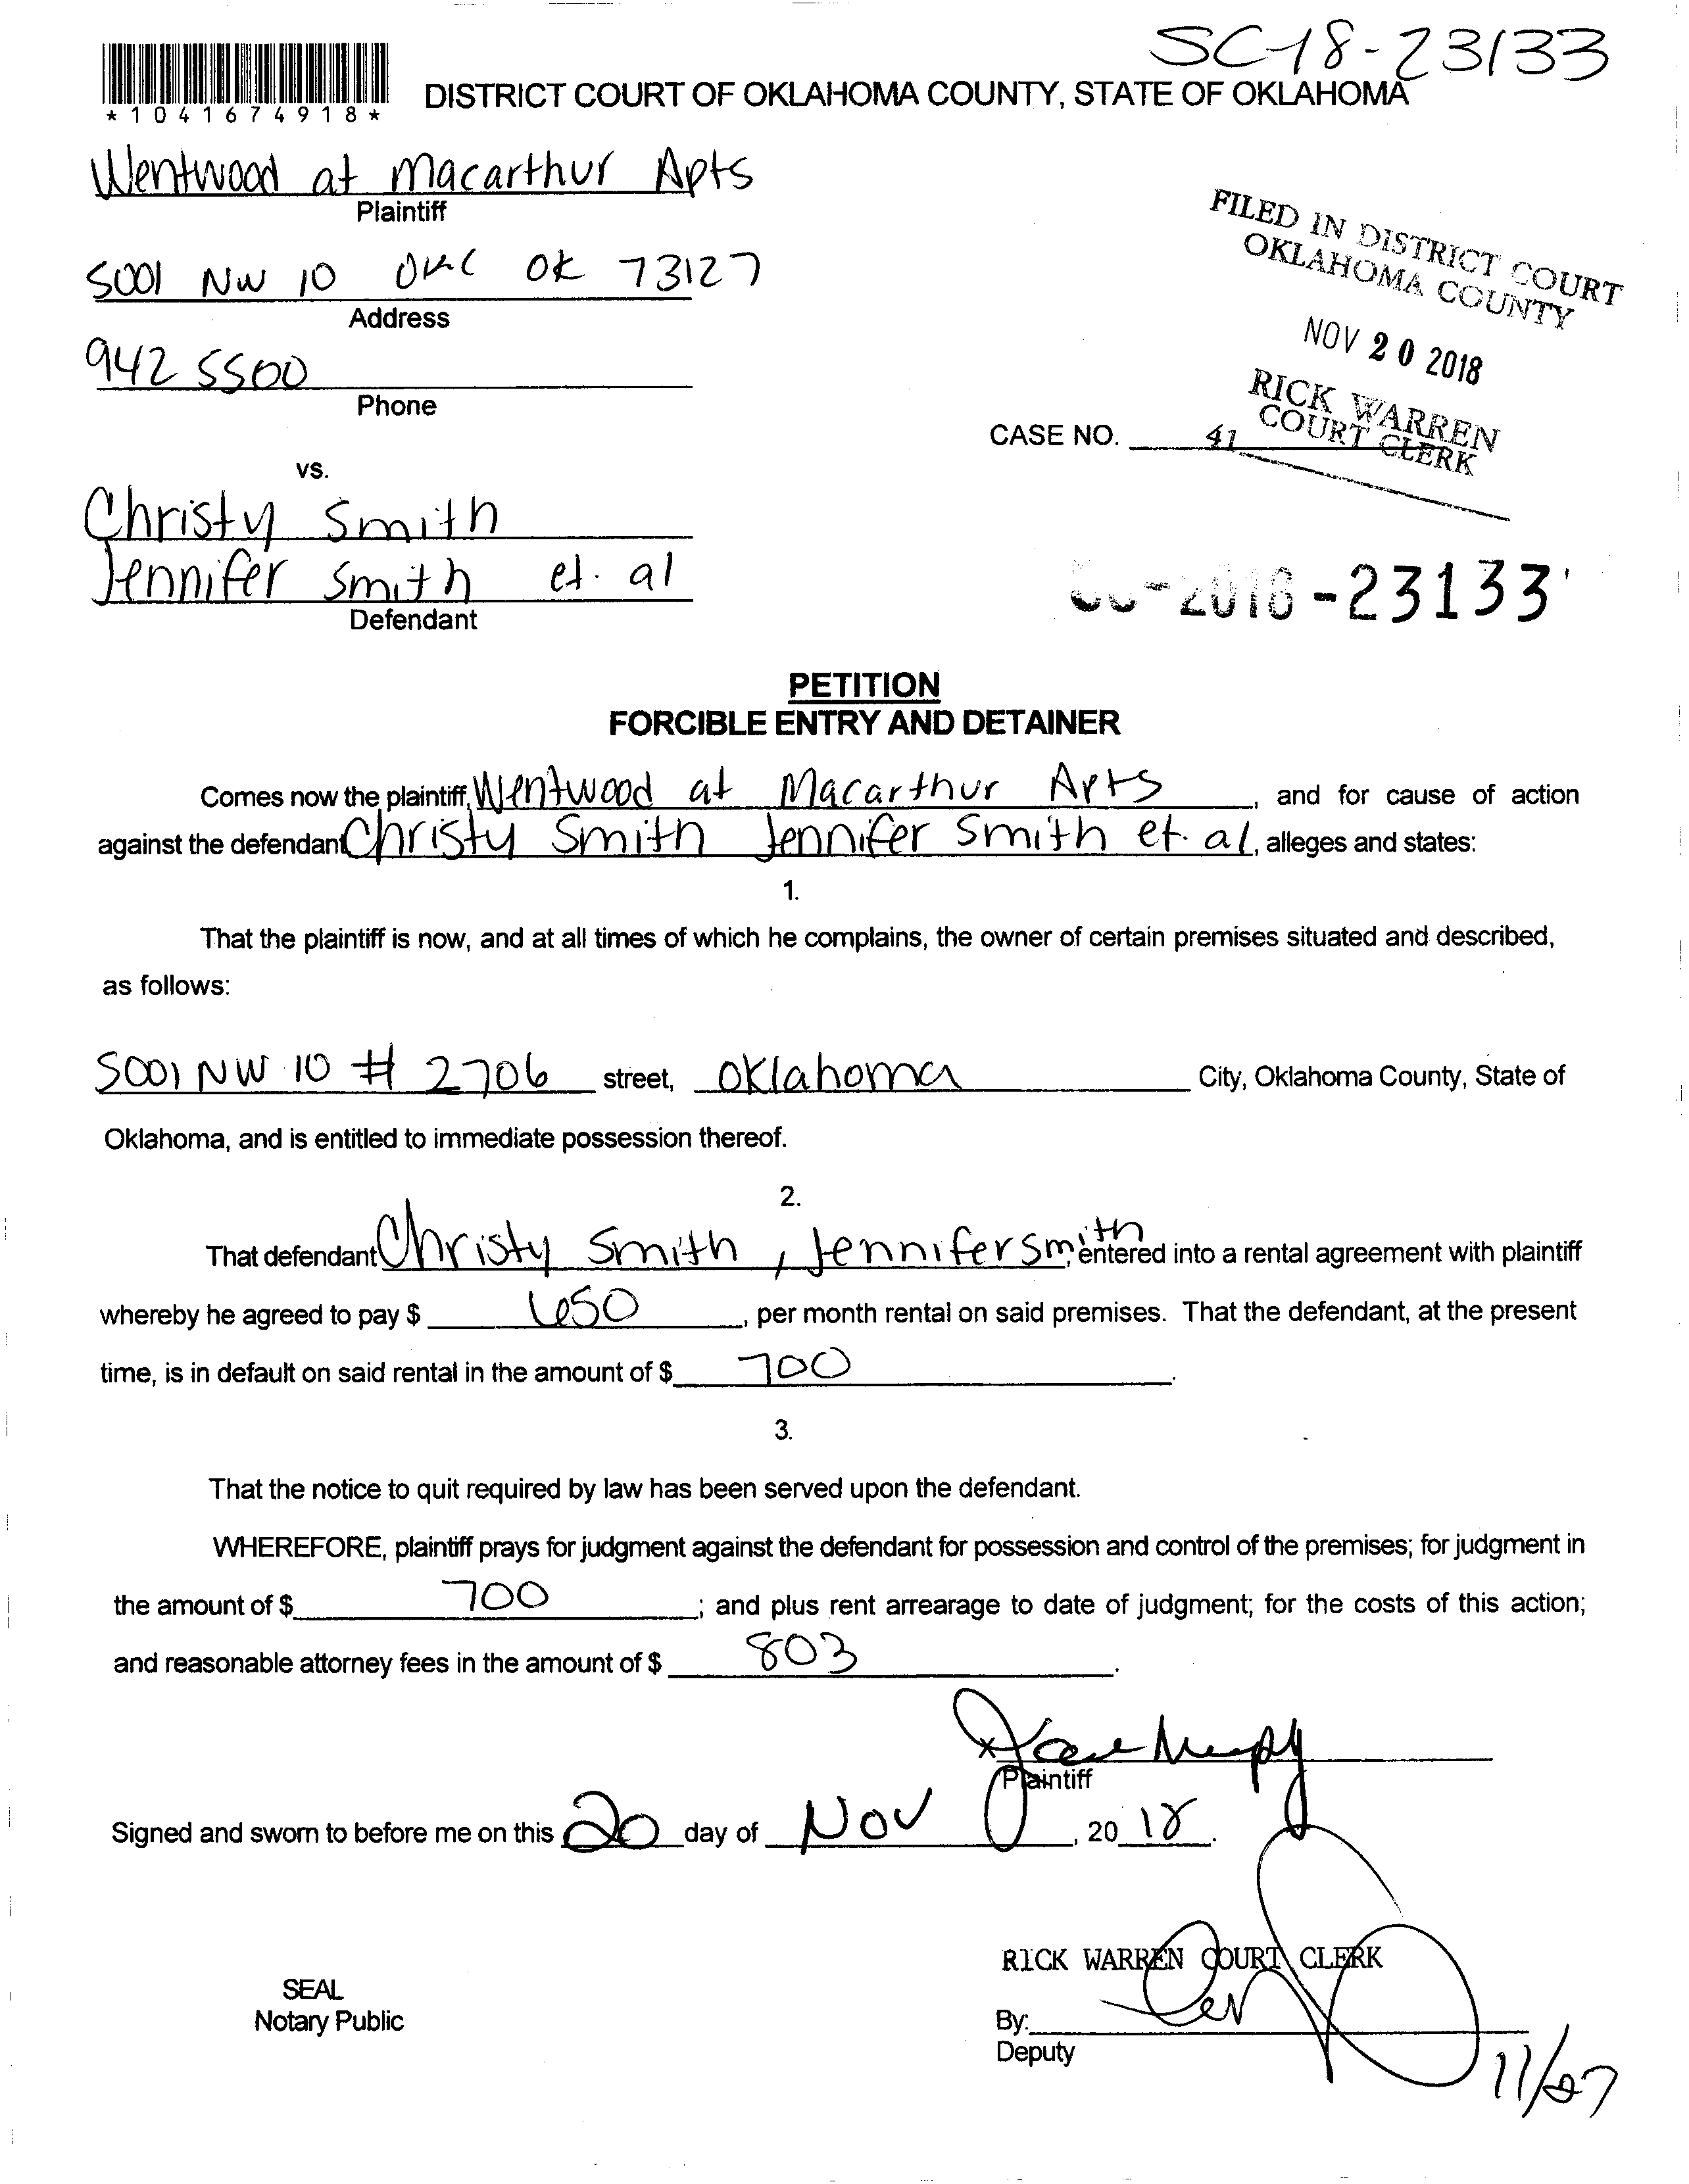 SC-18-23133
*1041674918*
DISTRICT COURT OF OKLAHOMA COUNTY, STATE OF OKLAHOMA
Wentwood at Macarthur Apts
Plaintiff
5001 NW 10 OKC OK 73127
Address
942 5500
Phone
FILED IN DISTRICT COURT
OKLAHOMA COUNTY
NOV 20 2018
RICK WARREN
COURT CLERK
CASE NO. 41
vs.
Christy Smith
Jennifer Smith et. al
Defendant
-2018-23133
PETITION
FORCIBLE ENTRY AND DETAINER
Comes now the plaintiff, Wentwood at Macarthur Apts, and for cause of action
against the defendant Christy Smith Jennifer Smith et. al, alleges and states:
1.
That the plaintiff is now, and at all times of which he complains, the owner of certain premises situated and described,
as follows:
5001 NW 10 # 2706 street, Oklahoma City, Oklahoma County, State of
Oklahoma, and is entitled to immediate possession thereof.
2.
That defendant Christy Smith, Jennifer Smith, entered into a rental agreement with plaintiff
whereby he agreed to pay $ 650, per month rental on said premises. That the defendant, at the present
time, is in default on said rental in the amount of $ 700.
3.
That the notice to quit required by law has been served upon the defendant.
WHEREFORE, plaintiff prays for judgment against the defendant for possession and control of the premises; for judgment in
the amount of $ 700; and plus rent arrearage to date of judgment; for the costs of this action;
and reasonable attorney fees in the amount of $ 803.
Plaintiff
Signed and sworn to before me on this 20 day of Nov, 2018.
RICK WARREN COURT CLERK
SEAL
Notary Public
By:
Deputy
11/27